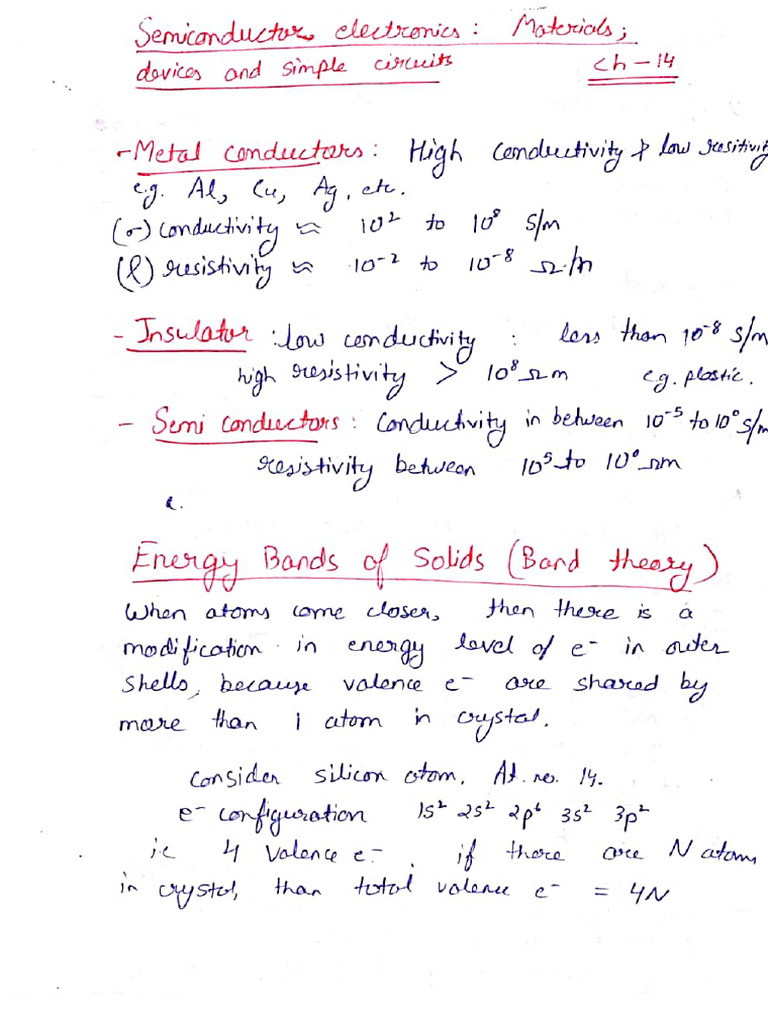 Semiconductor electronics: Materials;
devices and simple circuits Ch-14
- Metal conductors: High conductivity & low resitivity
e.g. Al, Cu, Ag, etc.
(σ) conductivity ≈ 10² to 10⁸ S/m
(ρ) resistivity ≈ 10⁻² to 10⁻⁸ Ω·m
- Insulator : low conductivity : less than 10⁻⁸ S/m
high resistivity > 10⁸ Ωm e.g. plastic.
- Semi conductors: Conductivity in between 10⁻⁵ to 10⁰ S/m
resistivity between 10⁵ to 10⁰ Ωm
Energy Bands of Solids (Band theory)
When atoms come closer, then there is a
modification in energy level of e⁻ in outer
shells, because valence e⁻ are shared by
more than 1 atom in crystal.
Consider silicon atom. At. no. 14.
e⁻ configuration 1s² 2s² 2p⁶ 3s² 3p²
i.e 4 valence e⁻. if there are N atom
in crystal, than total valence e⁻ = 4N